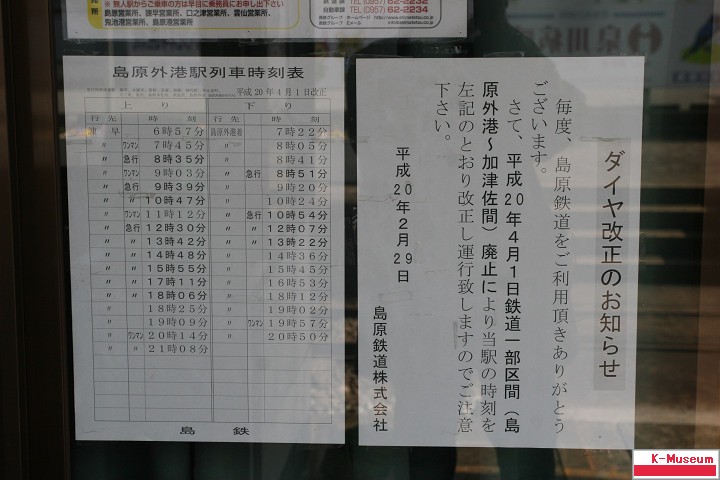 ※無人駅からご乗車の方は早目に乗務員にお申し出下さい。
島原営業所、諫早営業所、口之津営業所、雲仙営業所、
鬼池港営業所、島原港営業所
鉄道課 TEL(0957)62-2232
自動車課 TEL(0957)62-2234
島鉄グループ ホームページ http://www.shimatetsu.co.jp/
島鉄グループ Eメール
泉川病
島原外港駅列車時刻表
平成20年4月1日改正
上り 下り
行先 時刻 行先 時刻
諫早 6時57分 島原外港着 7時22分
〃 ワンマン 7時45分 〃 8時05分
〃 急行 8時35分 〃 8時41分
〃 ワンマン 9時03分 〃 急行 8時51分
〃 急行 9時39分 〃 9時20分
〃 〃 10時47分 〃 10時24分
〃 ワンマン 11時12分 〃 急行 10時54分
〃 急行 12時30分 〃 〃 12時07分
〃 〃 13時42分 〃 〃 13時22分
〃 〃 14時48分 〃 14時36分
〃 〃 15時55分 〃 15時45分
〃 〃 17時11分 〃 16時53分
〃 〃 18時06分 〃 18時12分
〃 18時25分 〃 19時02分
〃 19時09分 〃 ワンマン 19時57分
〃 ワンマン 20時14分 〃 20時50分
〃 〃 21時08分
島鉄
ダイヤ改正のお知らせ
毎度、島原鉄道をご利用頂きありがとう
ございます。
さて、平成20年4月1日鉄道一部区間(島
原外港~加津佐間)廃止により当駅の時刻を
左記のとおり改正し運行致しますのでご注意
下さい。
平成20年2月29日
島原鉄道株式会社
K-Museum